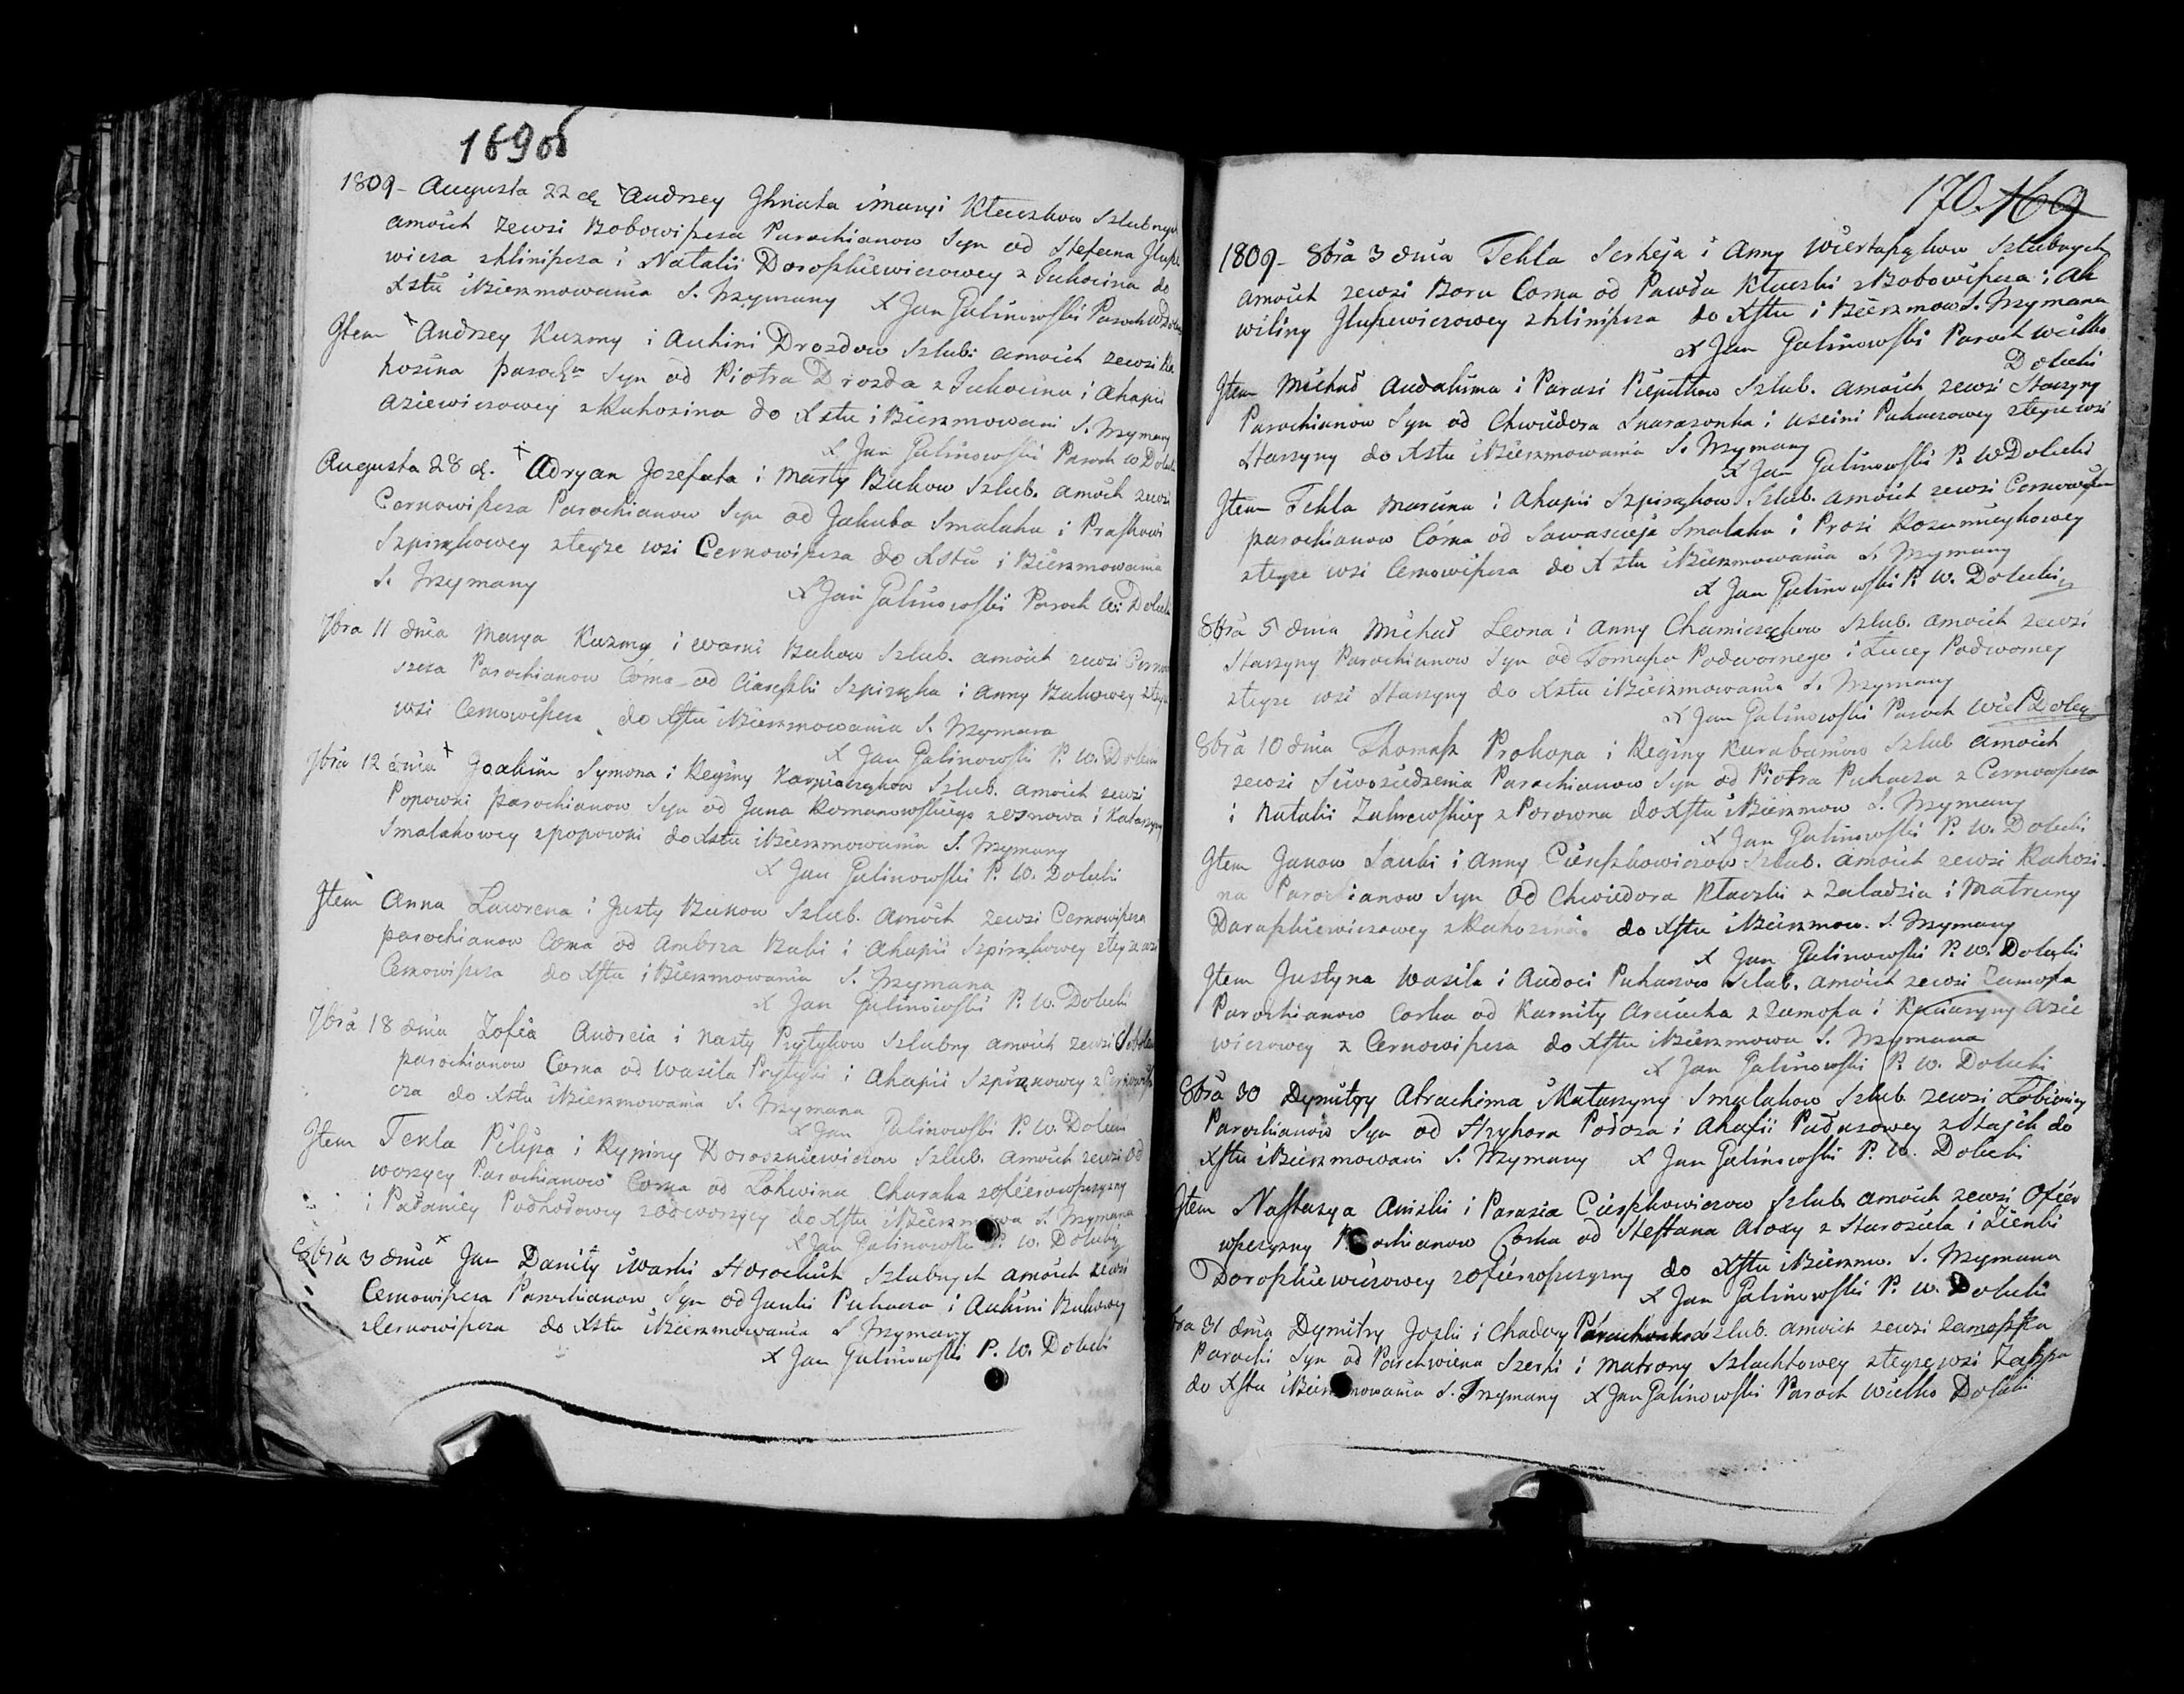 169об
1809 - Augusta 22 d. Andrzey Ihnata i Maryi Kłaczkow Szlubnych
amoich zewsi Bobowiszcza Parochianow Syn od Stefana
wicza zhliniszcza i Natalii Doroszkiewiczowey z Juhocina do
Xstu i Bierzmowania S. Trzymany X Jan Galinowski Paroch W Dołuc
Jtem Andrzey Kuzmy i Auhini Drozdow Szlub: amoich zewsi
hozina paroch Syn od Piotra Drozda z Juhocina i Ahapii
Aziewiczowey z Rahozina do Xstu i Bierzmowani S. Trzymany
X Jan Galinowski Paroch W Dołuc
Augusta 28 d. Adryan Jozefata i Marty Bukow Szlub. amoich zewsi
Cernowiszcza Parochianow Syn od Jakuba Smalaka i Praskowi
Szpirzkowey zteyże wsi Cernowiszcza do Xstu i Bierzmowania
S. Trzymany X Jan Galinowski Paroch W: Dołuc
7bra 11 dnia Marya Kuzmy i Warki Bukow Szlub. amoich zewsi Cernow
szcza Parochianow Corna od Ciareszki Szpirzka i Anny Bukowey zteyże
wsi Cernowiszcza do Xstu i Bierzmowania S. Trzymana
X Jan Galinowski P. W. Dołucki
7bra 12 dnia Joakim Symona i Reginy Szlub. amoich zewsi
Popowki parochianow Syn od Jana Romanowskiego i Katarzyny
Smalakowey zpopowki do Xstu i Bierzmowania S. Trzymany
X Jan Galinowski P. W. Dołucki
Jtem Anna Ławrena i Justy Bukow Szlub. amoich zewsi Cernowiszcza
parochianow Corna od Ambrza Babi i Ahapii Szpirzkowey zteyże wsi
Cernowiszcza do Xstu i Bierzmowania S. Trzymana
X Jan Galinowski P. W. Dołucki
7bra 18 dnia Zofia Andreia i Nasty Prytykow Szlubny amoich zewsi
parochianow Corna od Wasila Prytyki i Ahapii Szpirzkowey z Cernowisz
cza do Xstu i Bierzmowania S. Trzymana
X Jan Galinowski P. W. Dołucki
Jtem Tekla Pilipa i Krypiny Doroszkiewiczow Szlub. amoich zewsi Od
worzycy Parochianow Corna od Łohwina Charaka
i Pałaniey Podhodowey zodworzycy do Xstu i Bierzmowa S. Trzymana
X Jan Galinowski P. W. Dołucki
8bra 3 dnia Jan Daniły i Warki Szlubnych amoich zewsi
Cernowiszcza Parochianow Syn od Janki Puhacza i Auhini Bukowey
z Cernowiszcza do Xstu i Bierzmowania S. Trzymany
X Jan Galinowski P. W. Dołucki
170. 169
1809 - 8bra 3 dnia Tekla Serheja i Anny Szlubnych
amoich zewsi Boru Corna od Pawła Kłaczki z Bobowiszcza i Ak
wiliny zhliniszcza do Xstu i Bierzmow S. Trzymana
X Jan Galinowski Paroch Wielko
Dołucki
Jtem Michał Audakima i Parasi Szlub. amoich zewsi Starzyny
Parochianow Syn od Chwiedora i Puhaczowey zteyże wsi
Starzyny do Xstu i Bierzmowania S. Trzymany
X Jan Galinowski P. W Dołucki
Jtem Tekla Marcina i Ahapii Szpirzkow Szlub. amoich zewsi Cernowiszcza
parochianow Córna od Sawascieja Smalaka i Prosi
zteyże wsi Cernowiszcza do Xstu i Bierzmowania S. Trzymany
X Jan Galinowski P. W. Dołucki
8bra 5 dnia Michał Leona i Anny Chamiczykow Szlub. amoich zewsi
Starzyny Parochianow Syn od Tomasza Podwornego i Łucey Podworney
zteyże wsi Starzyny do Xstu i Bierzmowania S. Trzymany
X Jan Galinowski Paroch Wiel Dołuc
8bra 10 dnia Thomasz Prokopa i Reginy Karabanow Szlub amoich
zewsi Parochianow Syn od Piotra Puhacza z Cernowiszcza
i Natalii Zakrewskiey z Porowna do Xstu i Bierzmow S. Trzymany
X Jan Galinowski P. W. Dołucki
Jtem Janow Sauki i Anny Ciareszkowiczow Szlub. amoich zewsi Rahozi
na Parochianow Syn od Chwiedora Kłaczki z Zaladzia i Matruny
Daraszkiewiczowey z Rahozina do Xstu i Bierzmow. S. Trzymany
X Jan Galinowski P. W. Dołucki
Jtem Justyna Wasila i Audoci Puhaczow Szlub. amoich zewsi Zamosza
Parochianow Corka od Karnity z Zamosza i Katarzyny Azie
wiczowey z Cernowiszcza do Xstu i Bierzmowa S. Trzymana
X Jan Galinowski P. W. Dołucki
8bra 30 Dymitry Atrachima i Katarzyny Smalakow Szlub zewsi
Parochianow Syn od Hryhora i Ahafii do
Xstu i Bierzmowani S. Trzymany X Jan Galinowski P. W. Dołucki
Jtem Nastazya Aniski i Parasia Ciareszkowiczow Szlub amoich zewsi Ofier
owszczyzny Parochianow Corka od Steffana z Starosiela i Zienki
Doroszkiewiczowey zofierowszczyzny do Xstu i Bierzmo. S. Trzymana
X Jan Galinowski P. W. Dołucki
bra 31 dnia Dymitry Joski i Chadory Szlub. amoich zewsi Zamoszza
Parochi Syn od Parchwiena Szerki i Matrony Szlachtowey zteyże wsi
do Xstu i Bierzmowania S. Trzymany X Jan Galinowski Paroch Wielko Dołucki